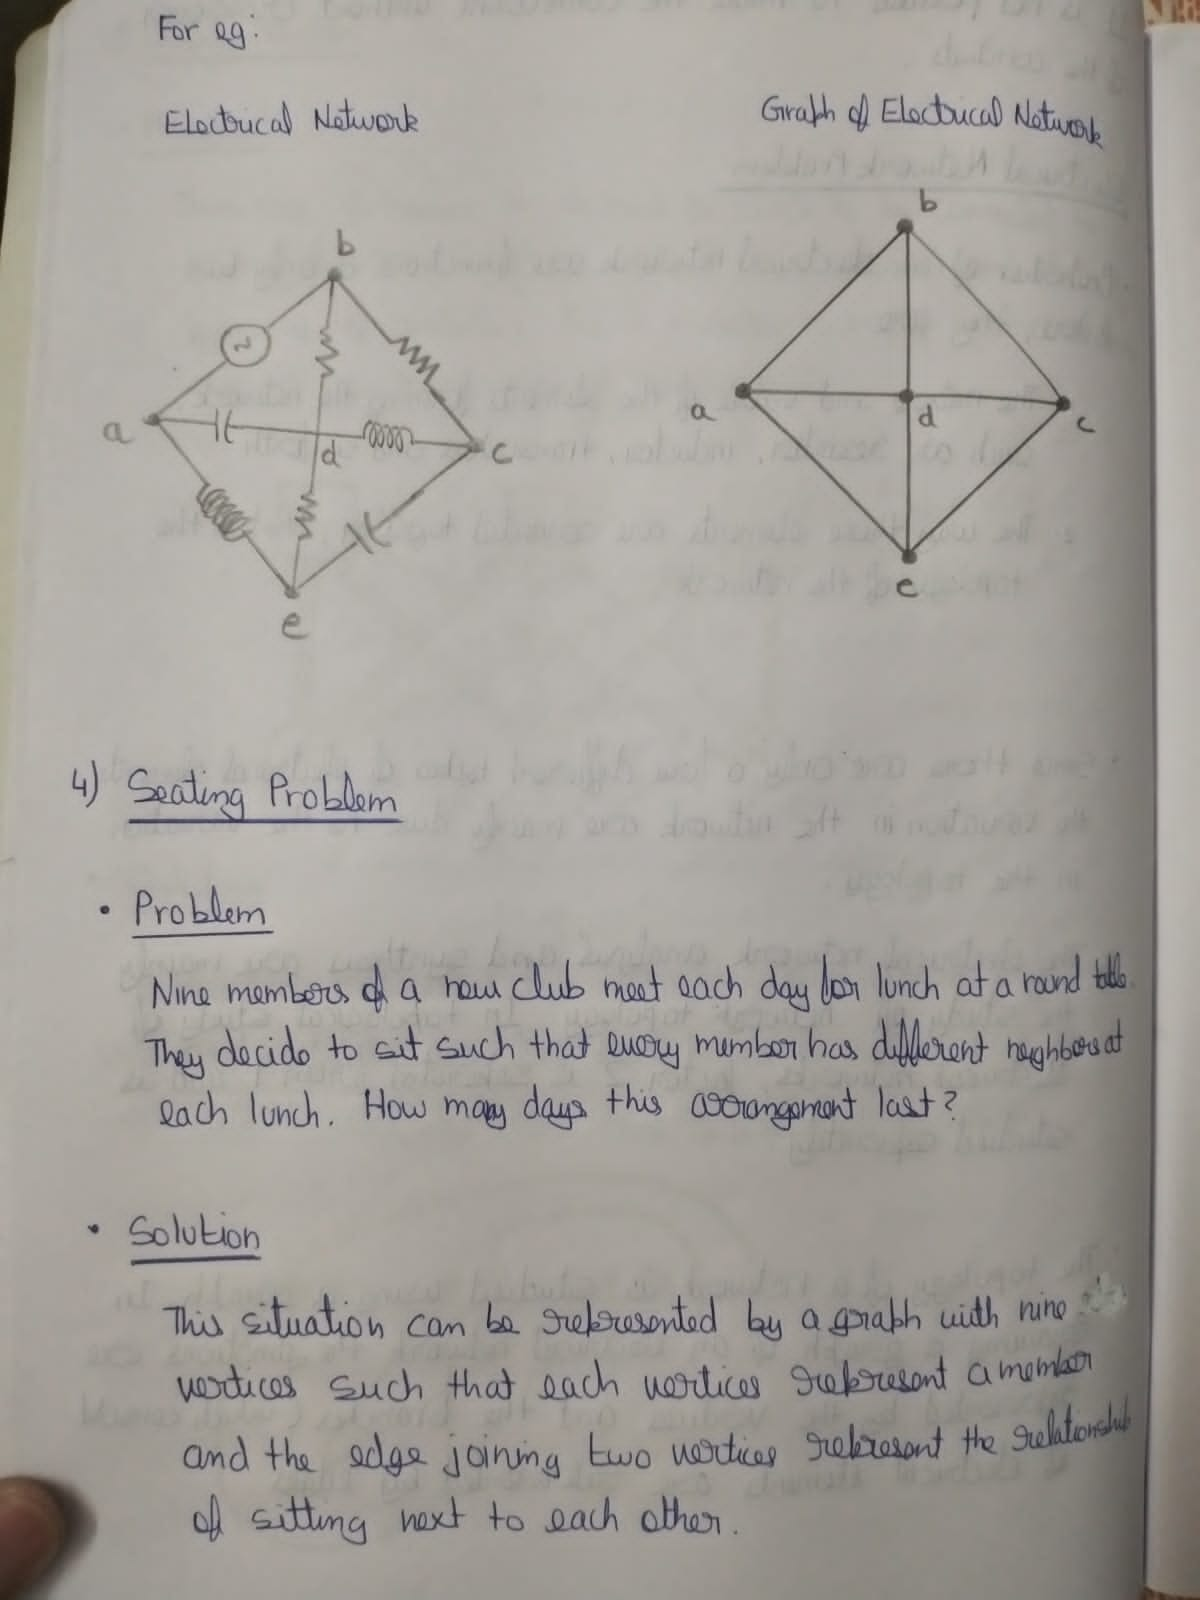 For eg:
Electrical Network
Graph of Electrical Network
b
a
d
c
e
b
a
d
c
e
4) Seating Problem
• Problem
Nine members of a new club meet each day for lunch at a round table.
They decide to sit such that every member has different neighbors at
each lunch. How many days this arrangement last?
• Solution
This situation can be represented by a graph with nine
vertices such that each vertices represent a member
and the edge joining two vertices represent the relationship
of sitting next to each other.